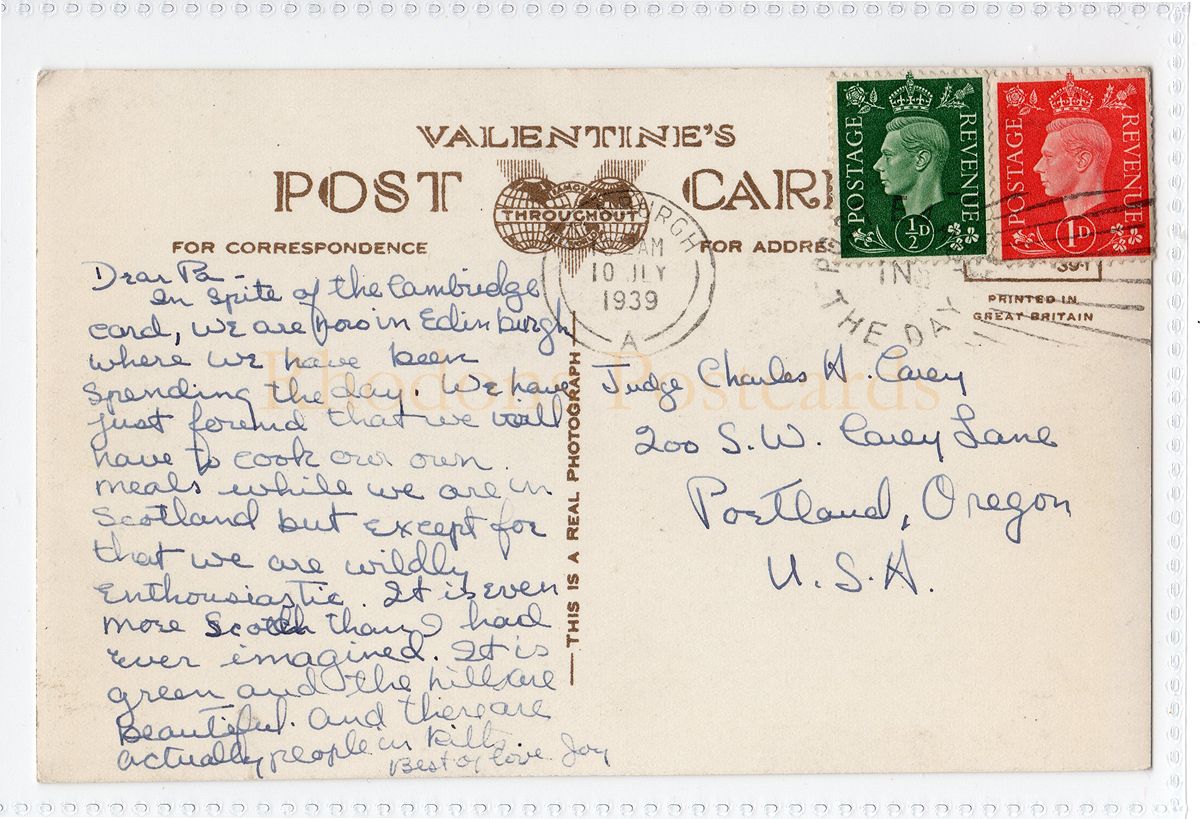 VALENTINE'S
POST CARD
FAMOUS
THROUGHOUT
THE WORLD
FOR CORRESPONDENCE
FOR ADDRE
POSTAGE REVENUE
½D
POSTAGE REVENUE
1D
AM
10 JLY
1939
A
IN
THE DAY
PRINTED IN
GREAT BRITAIN
Dear Pa -
In spite of the Cambridge
card, we are now in Edinburgh
where we have been
spending the day. We have
just found that we will
have to cook our own
meals while we are in
Scotland but except for
that we are wildly
Enthousiastic. It is even
more Scotch than I had
ever imagined. It is
green and the hills are
beautiful. And there are
actually people in kilts.
Best of love Joy
THIS IS A REAL PHOTOGRAPH
Judge Charles H. Carey
200 S.W. Carey Lane
Portland, Oregon
U.S.A.
Rhodons Postcards